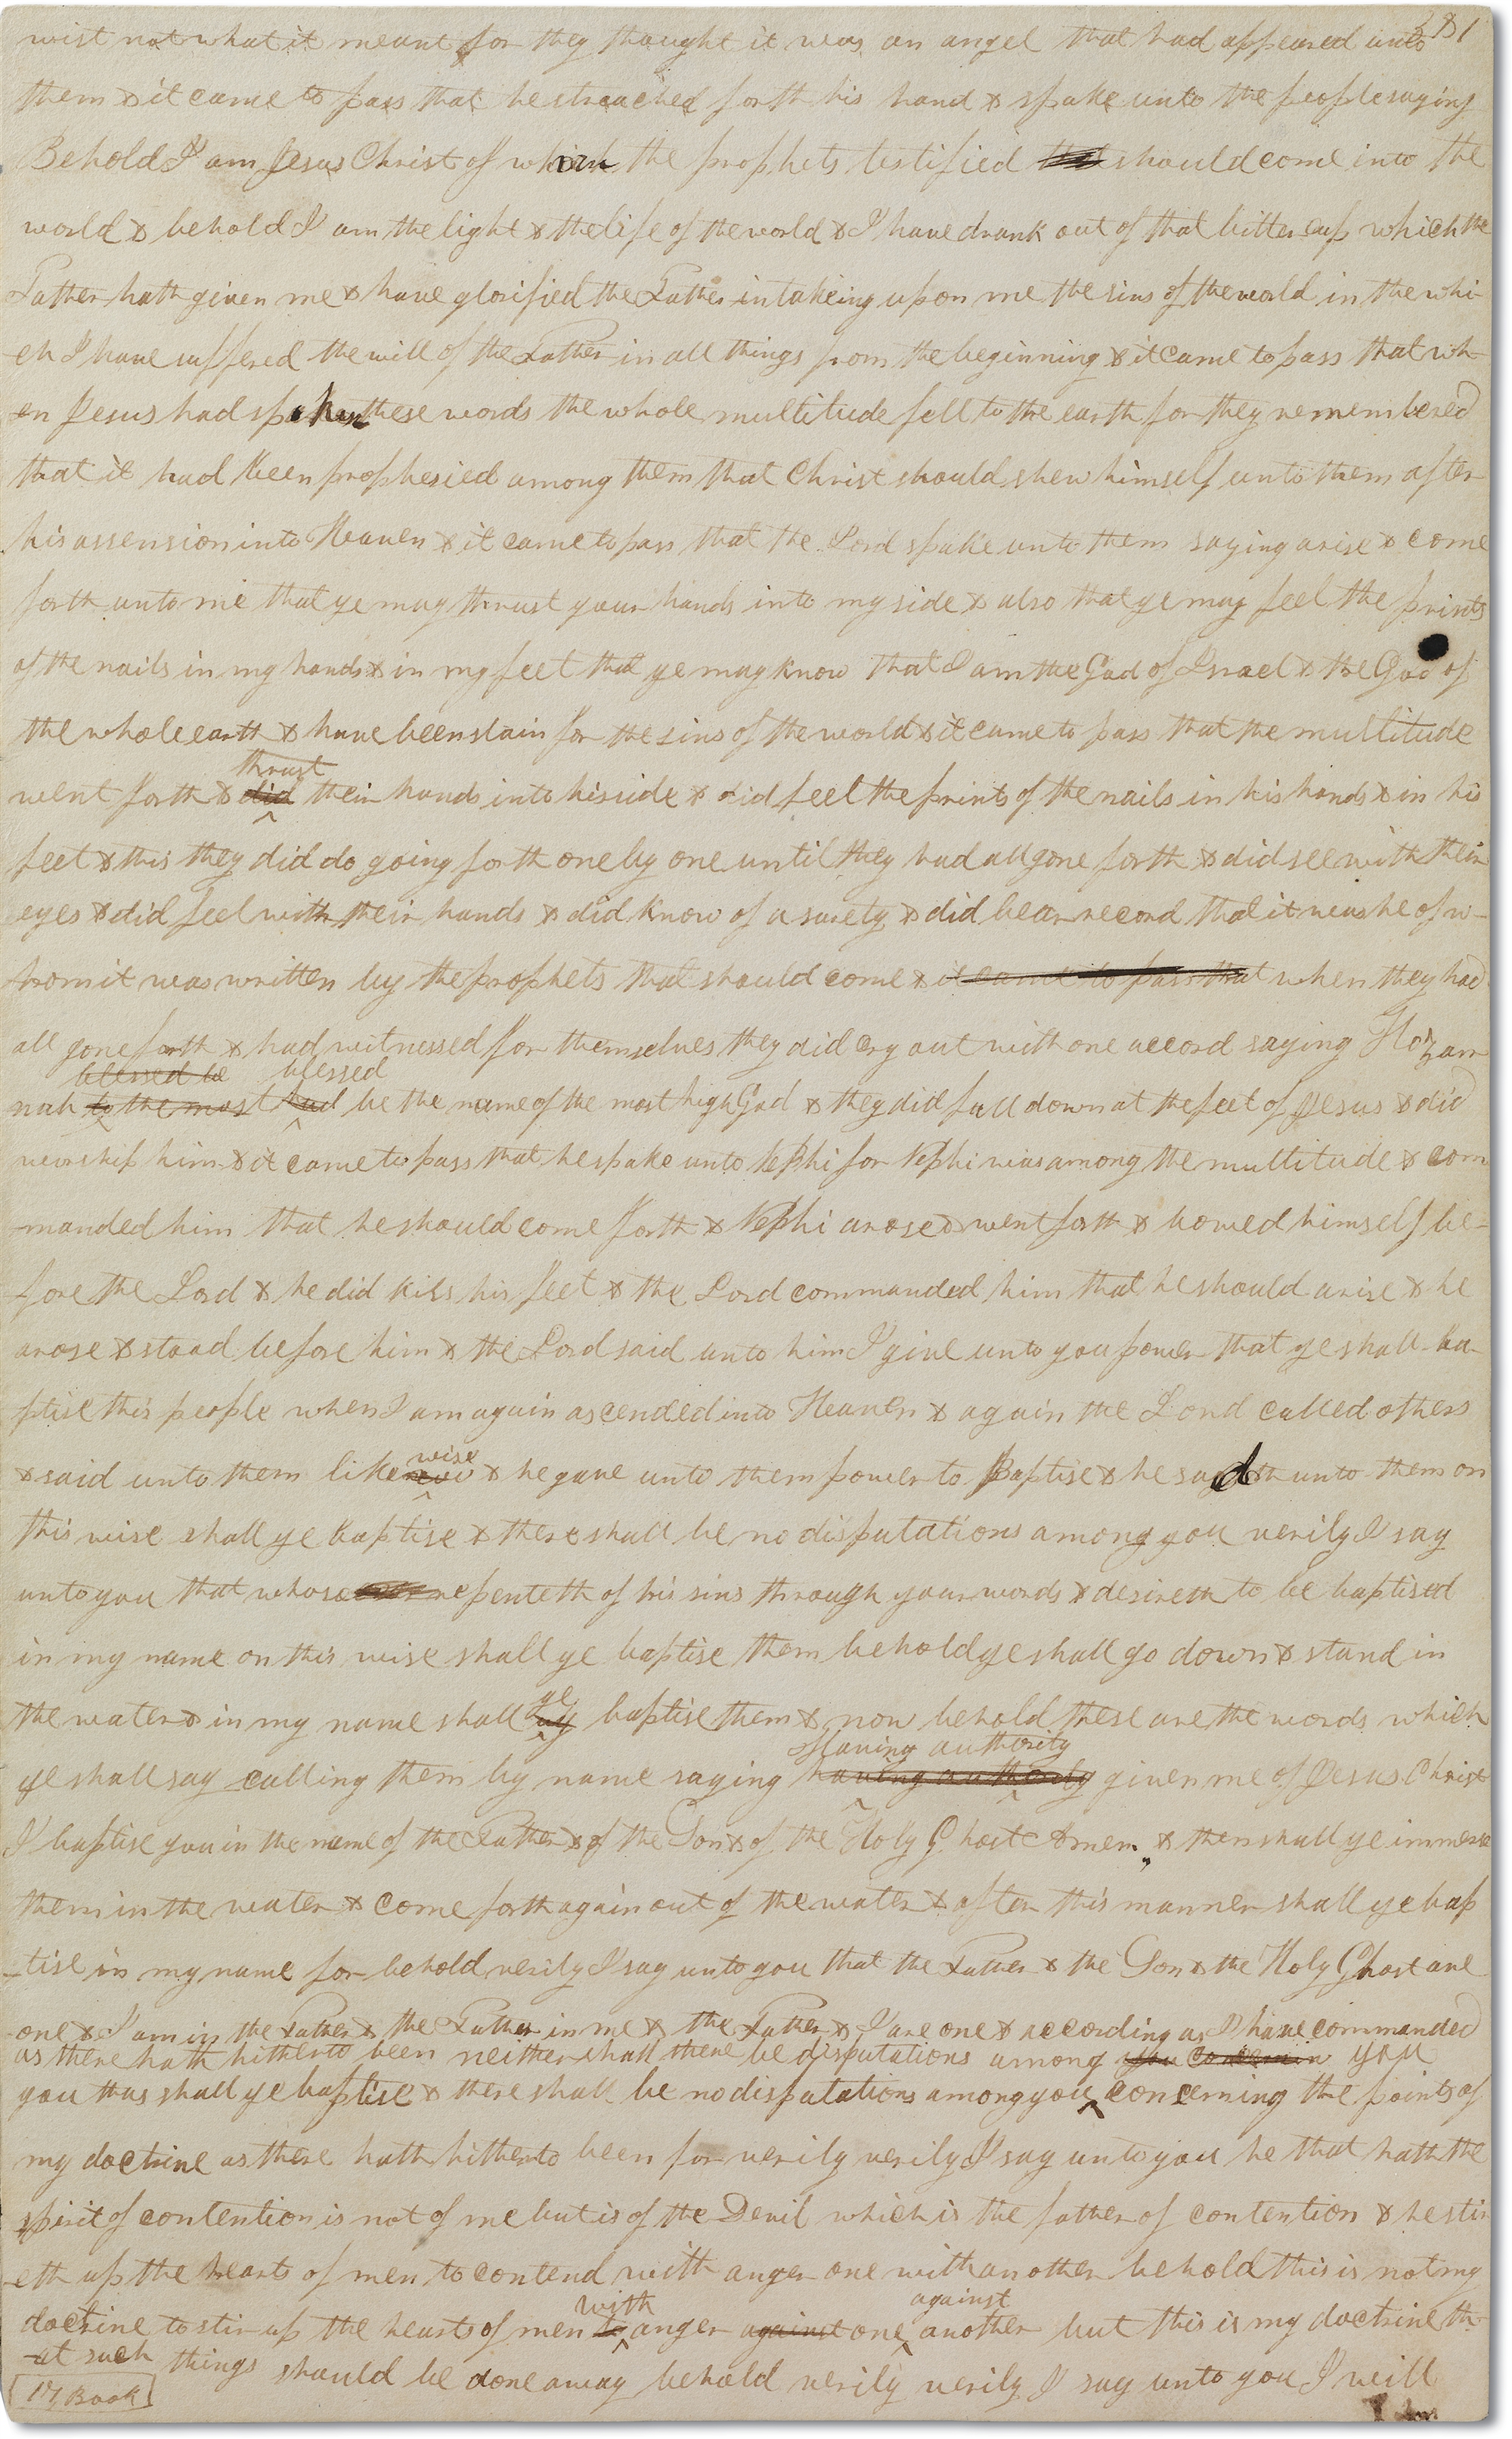 381
wist not what it meant for they thought it was an angel that had appeared unto
them & it came to pass that he streached forth his hand & spake unto the people saying
Behold I am Jesus Christ of whom the prophets testified that should come into the
world & behold I am the light & the life of the world & I have drunk out of that bitter cup which the
Father hath given me & have glorified the Father in takeing upon me the sins of the world in the whi-
-ch I have suffered the will of the Father in all things from the beginning & it came to pass that wh-
-en Jesus had spoken these words the whole multitude fell to the earth for they remembered
that it had been prophesied among them that Christ should shew himself unto them after
his assension into Heaven & it came to pass that the Lord spake unto them saying arise & come
forth unto me that ye may thrust your hands into my side & also that ye may feel the prints
of the nails in my hands & in my feet that ye may know that I am the God of Israel & the God of
the whole earth & have been slain for the sins of the world & it came to pass that the multitude
thrust
went forth & did their hands into his side & did feel the prints of the nails in his hands & in his
feet & this they did do going forth one by one until they had all gone forth & did see with their
eyes & did feel with their hands & did know of a surety & did bear record that it was he of w-
-hom it was written by the prophets that should come & it came to pass that when they had
all gone forth & had witnessed for themselves they did cry out with one accord saying Hozan
blessed be blessed
nah to the most be the name of the most high God & they did fall down at the feet of Jesus & did
worship him & it came to pass that he spake unto Nephi for Nephi was among the multitude & com
-manded him that he should come forth & Nephi arose & went forth & bowed himself be-
fore the Lord & he did kiss his feet & the Lord commanded him that he should arise & he
arose & stood before him & the Lord said unto him I give unto you power that ye shall ba-
ptise this people when I am again ascended into Heaven & again the Lord called others
wise
& said unto them like & he gave unto them power to Baptise & he said unto them on
this wise shall ye baptise & there shall be no disputations among you verily I say
unto you that whoso repenteth of his sins through your words & desireth to be baptised
in my name on this wise shall ye baptise them behold ye shall go down & stand in
ye
the water & in my name shall baptise them & now behold these are the words which
Having authority
ye shall say calling them by name saying having authority given me of Jesus Christ
I baptise you in the name of the Father & of the Son & of the Holy Ghost Amen & then shall ye immerse
them in the water & come forth again out of the water & after this manner shall ye bap
-tise in my name for behold verily I say unto you that the Father & the Son & the Holy Ghost are
one & I am in the Father & the Father in me & the Father & I are one & according as I have commanded
as there hath hitherto been neither shall there be disputations among you concernin you
you thus shall ye baptise & there shall be no disputations among you concerning the points of
my doctrine as there hath hitherto been for verily verily I say unto you he that hath the
spirit of contention is not of me but is of the Devil which is the father of contention & he stir
-eth up the hearts of men to contend with anger one with another behold this is not my
with against
doctrine to stir up the hearts of men to anger against one another but this is my doctrine th-
-at such things should be done away behold verily verily I say unto you I will
17 Book